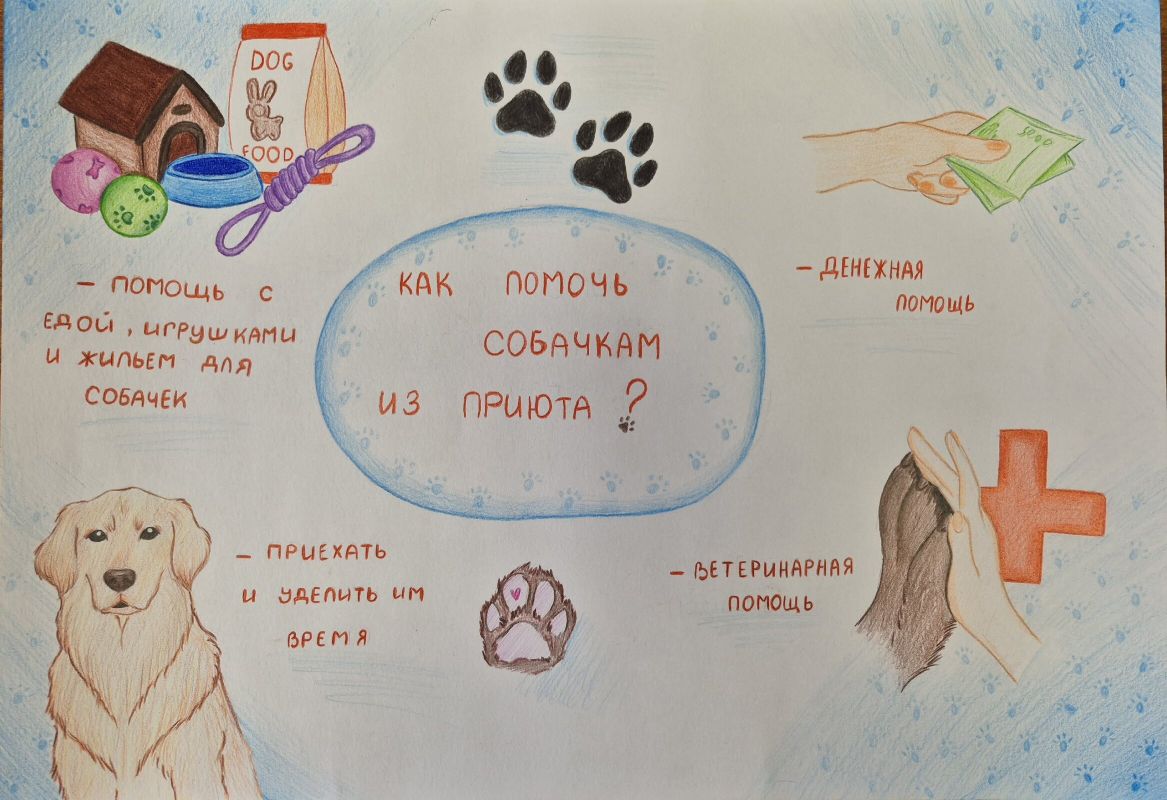 DOG
FOOD
5000
- ПОМОЩЬ С
ЕДОЙ, ИГРУШКАМИ
И ЖИЛЬЕМ ДЛЯ
СОБАЧЕК
КАК ПОМОЧЬ
СОБАЧКАМ
ИЗ ПРИЮТА ?
- ДЕНЕЖНАЯ
ПОМОЩЬ
- ПРИЕХАТЬ
И УДЕЛИТЬ ИМ
ВРЕМЯ
- ВЕТЕРИНАРНАЯ
ПОМОЩЬ